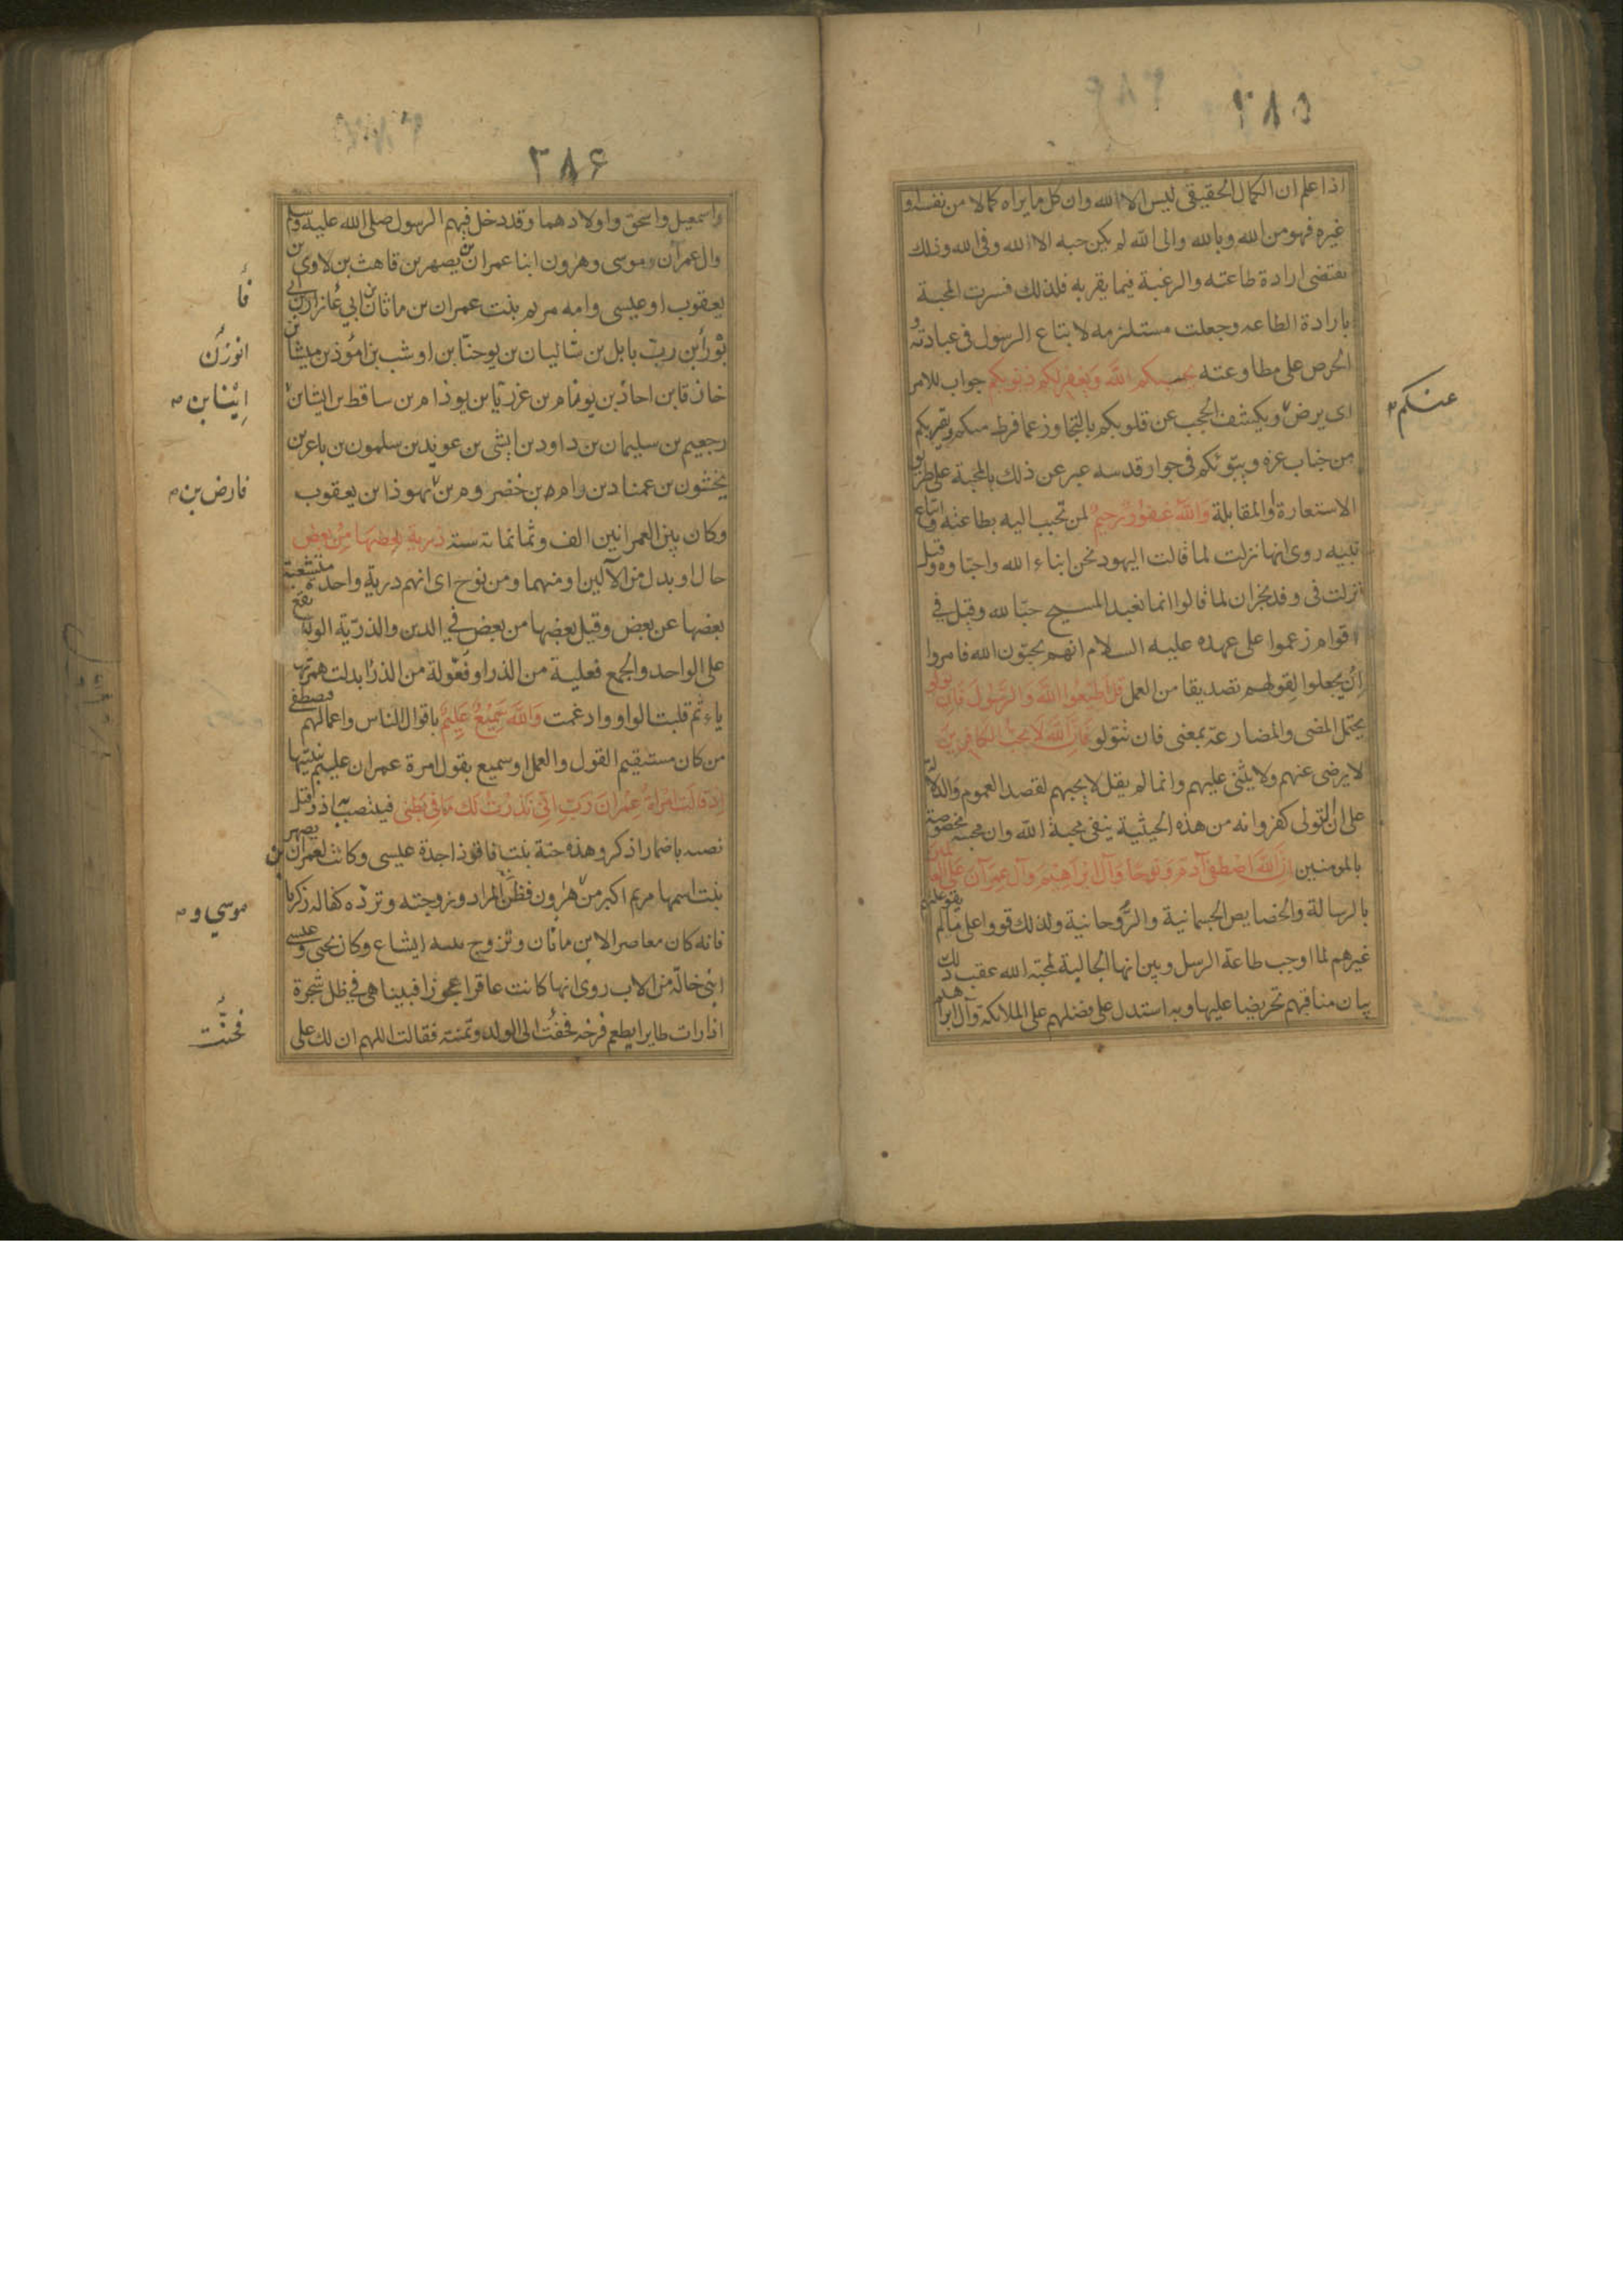 ٣٨٥
اذا علم ان الكمال الحقيقى ليس الا الله وان كل ما يراه كمالا من نفسه او
غيره فهو من الله وبالله والى الله لم يكن حبه الا الله وفى الله وذلك
يقتضى ارادة طاعته والرغبة فيما يقربه فلذلك فسرت المحبة
بارادة الطاعه وجعلت مستلزمه لاتباع الرسول فى عبادته و
الحرص على مطاوعته يحببكم الله ويغفر لكم ذنوبكم جواب للامر
اى يرض ويكشف الحجب عن قلوبكم بالتجاوز عما فرط منكم ويقربكم
عنكم
من جناب عزه ويبوئكم فى جوار قدسه عبر عن ذلك بالمحبة على طريق
الاستعارة والمقابلة والله غفور رحيم لمن تحبب اليه بطاعته واتباع
نبيه روى انها نزلت لما قالت اليهود نحن ابناء الله واحباوه وقيل
نزلت فى وفد نجران لما قالوا انما نعبد المسيح حبا لله وقيل فى
اقوام زعموا على عهده عليه السلام انهم يحبون الله فامروا
ان يجعلوا لقولهم تصديقا من العمل قل اطيعوا الله والرسول فان تولوا
يحتمل المضى والمضارعة بمعنى فان تتولو فان الله لا يحب الكافرين
لا يرضى عنهم ولا يثنى عليهم وانما لم يقل لا يحبهم لقصد العموم والدلالة
على ان التولى كفر وانه من هذه الحيثية ينفى محبة الله وان محبته مخصوصة
بالمومنين ان الله اصطفى آدم ونوحا وآل ابراهيم وآل عمران على العالمين
بالرسالة والخصايص الجسمانية والروحانية ولذلك قووا على ما لم يقو عليه
غيرهم لما اوجب طاعة الرسل وبين انها الجالبة لمحبة الله عقب ذلك
بيان مناقبهم تحريضا عليها وبه استدل على فضلهم على الملائكة وآل ابراهيم
٣٨۶
واسمعيل واسحق واولادهما وقد دخل فيهم الرسول صلى الله عليه وسلم
وال عمران موسى وهرون ابنا عمران بن يصهر بن قاهث بن لاوى بن
فأ
يعقوب او عيسى وامه مريم بنت عمران بن ماثان بن ابي عازار بن ابي
بورا بن رب بابل بن ساليان بن يوحنا بن اوشب بن امؤذن بن ميشا بن
انوزن
خازقا بن احاذ بن يوثام بن عزريا بن يوذام بن ساقط بن ايشا بن
ايشابن
رجعيم بن سليمان بن داود بن ايشى بن عويد بن سلمون بن باعز بن
يخشون بن عمناد بن رام بن خضروم بن يهوذا بن يعقوب
فارض بن
وكان بين العمرانين الف وثمانمائة سنة ذرية بعضها من بعض
حال او بدل من الآلين او منهما ومن نوح اى انهم ذرية واحدة متشعبة
بعضها عن بعض وقيل بعضها من بعض في الدين والذرية الولد يقع
على الواحد والجمع فعلية من الذر او فعولة من الذرا بدلت همزتها
ياء ثم قلبت الواو وادغمت والله سميع عليم باقوال الناس واعمالهم فيصطفى
من كان مستقيم القول والعمل او سميع بقول امرة عمران عليم بنيتها
اذ قالت امراة عمران رب انى نذرت لك ما فى بطنى فينتصب به اذ وقيل
نصبه باضمار اذكر وهذه حنة بنت فاقوذ جدة عيسى وكانت لعمران بن يصهر
بنت اسمها مريم اكبر من هرون فظن ان المراد زوجته وترده كفالة زكريا
موسي و
فانه كان معاصرا لابن ماثان وتزوج بنته ايشاع وكان يحيى وعيسى
ابنى خالة من الاب روى انها كانت عاقرا عجوزا فبينا هى في ظل شجرة
اذا رات طايرا يطعم فرخه فحنت الى الولد وتمنته فقالت اللهم ان لك على
فحنت